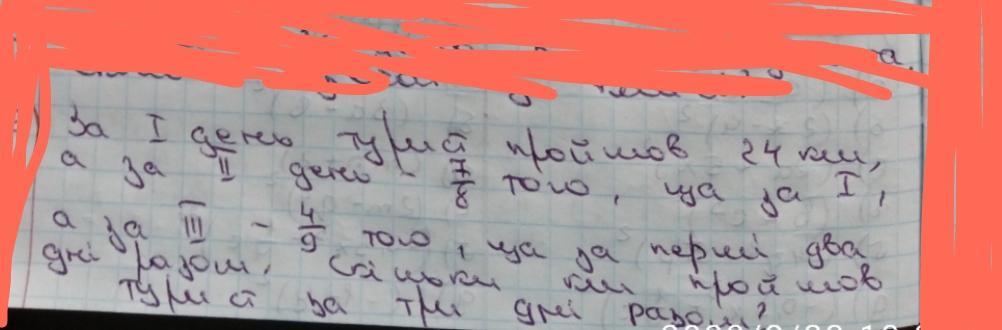 За I день турист пройшов 24 км,
а за II день - 7/8 того, що за I,
а за III - 4/9 того, що за перші два
дні разом. Скільки км пройшов
турист за три дні разом?